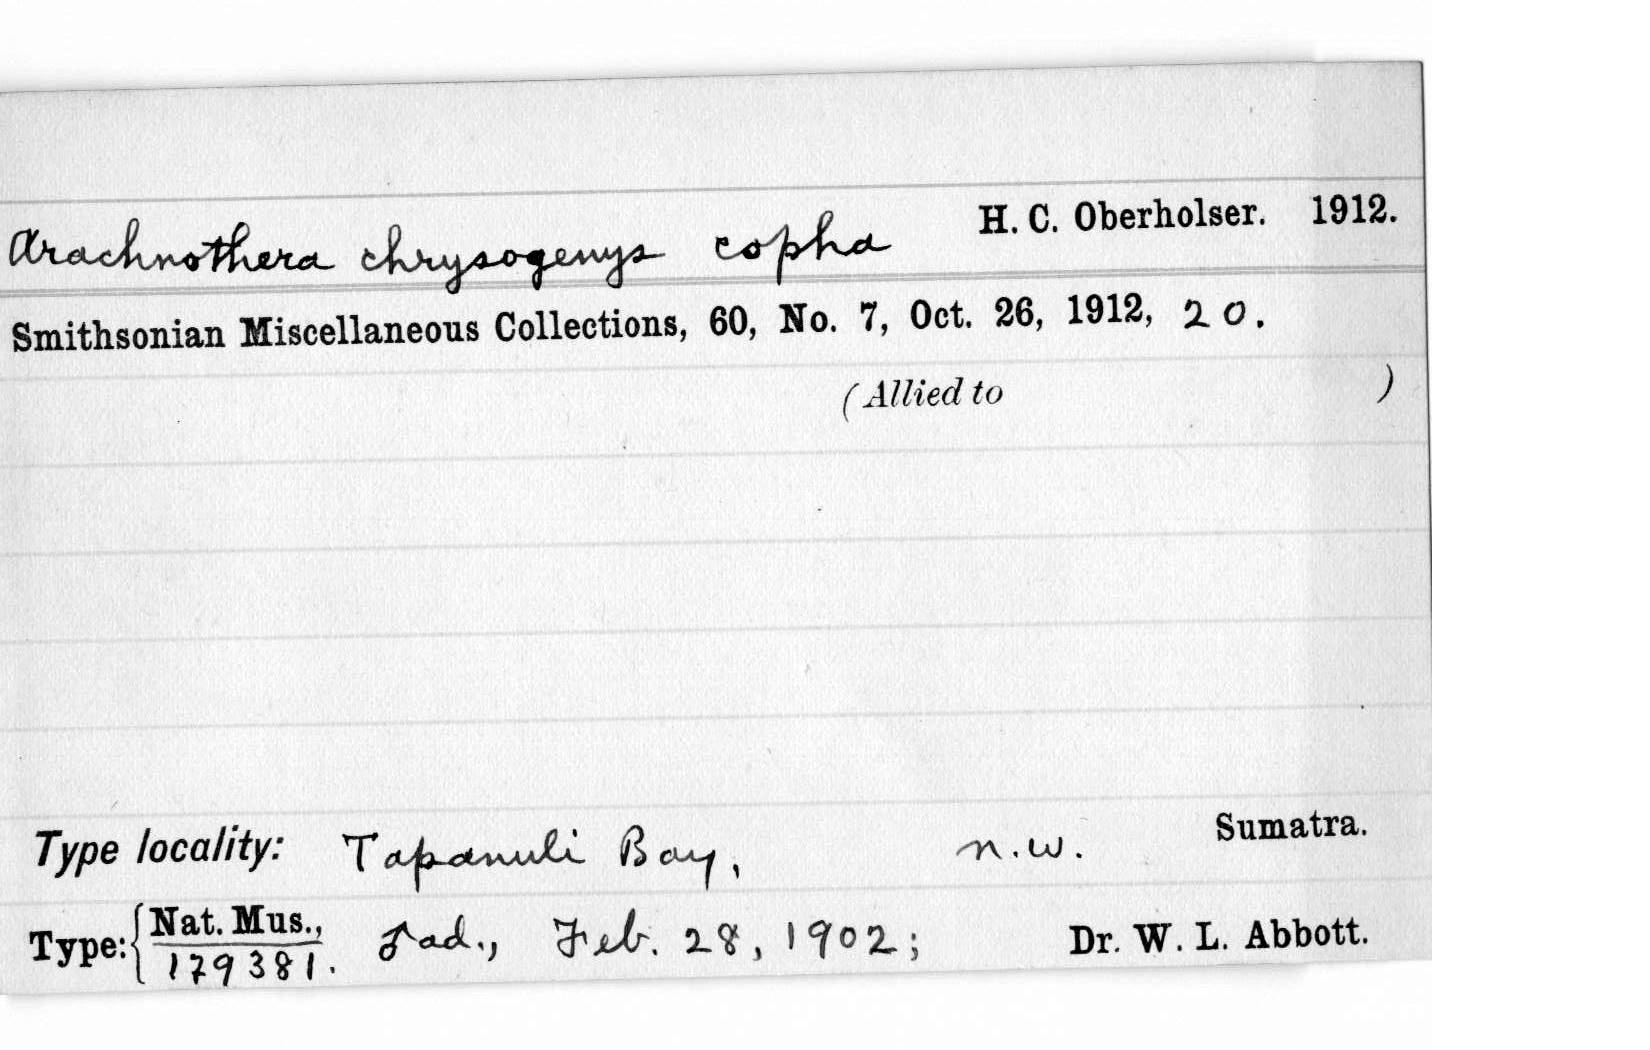 Arachnothera chrysogenys copha H. C. Oberholser. 1912.
Smithsonian Miscellaneous Collections, 60, No. 7, Oct. 26, 1912, 20.
(Allied to )
Type locality: Tapanuli Bay, n.w. Sumatra.
Type: { Nat. Mus., ad., Feb. 28, 1902; Dr. W. L. Abbott.
179381.